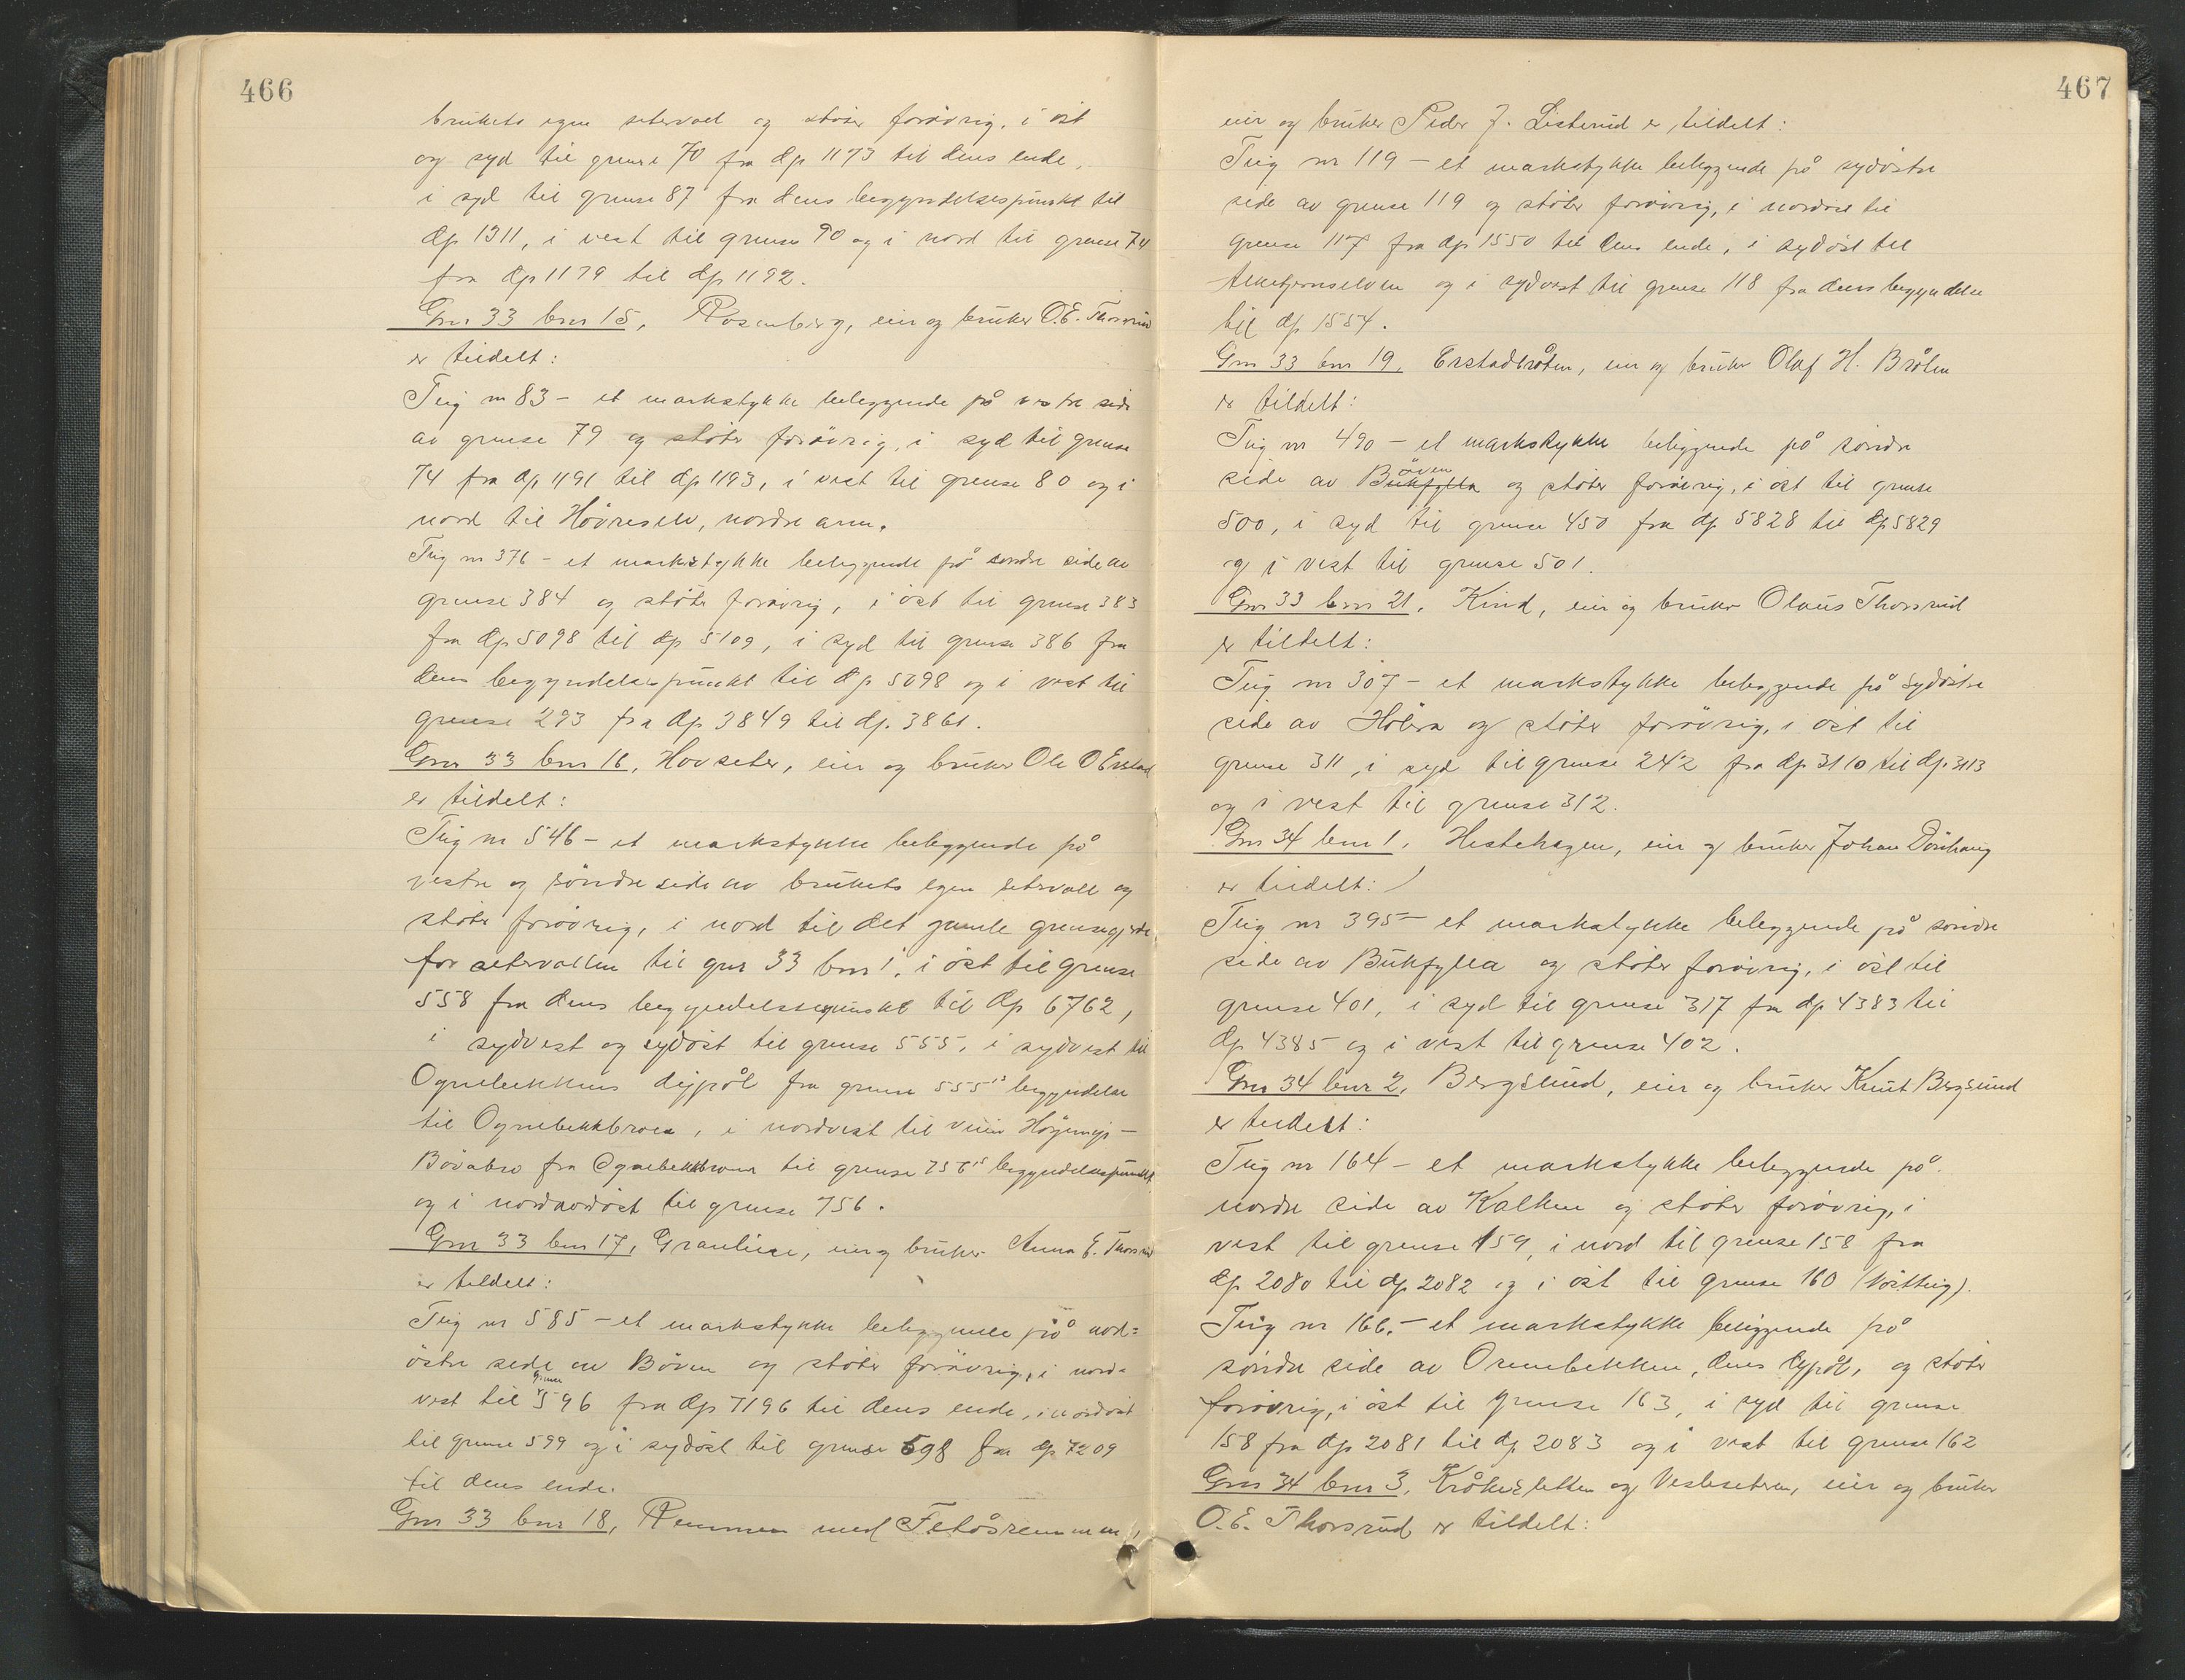 466
brukets egen setervoll og støter forøvrig, i øst
og syd til grense 70 fra dp 1173 til dens ende,
i syd til grense 87 fra dens begyndelsespunkt til
dp 1311, i vest til grense 90 og i nord til grense 74
fra dp 1179 til dp 1192.
Gnr 33 bnr 15, Rosenberg, eier og bruker O.E. Thorsrud
er tildelt:
Teig nr 83 – et markstykke beliggende på vestre side
av grense 79 og støter forøvrig, i syd til grense
74 fra dp 1191 til dp 1193, i vest til grense 80 og i
nord til Høvreselv, nordre arm.
Teig nr 376 – et markstykke beliggende på søndre side av
grense 384 og støter forøvrig, i øst til grense 383
fra dp 5098 til dp 5109, i syd til grense 386 fra
dens begyndelsespunkt til dp 5098 og i vest til
grense 293 fra dp 3849 til dp. 3861.
Gnr 33 bnr 16, Hovseter, eier og bruker Ole O Erstad
er tildelt:
Teig nr 546 – et markstykke beliggende på
vestre og søndre side av brukets egen setervoll og
støter forøvrig, i nord til det gamle grensegjerde
for setervollen til gnr 33 bnr 1, i øst til grense
558 fra dens begyndelsespunkt til dp 6762,
i sydvest og sydøst til grense 555, i sydvest til
Ognebekkens dypål fra grense 555's begyndelse
til Ognebekkbroen, i nordvest til veien
Bøvabro fra Ognebekkbroen til grense 756's begyndelsespunkt
og i nordnordøst til grense 756.
Gnr 33 bnr 17, Granliene, eier og bruker Anna E. Thorsrud
er tildelt:
Teig nr 585 – et markstykke beliggende på nord=
østre side av Bøven og støter forøvrig, i nord=
vest til grense 596 fra dp 7196 til dens ende, i nordøst
til grense 599 og i sydøst til grense 598 fra dp 7209
til dens ende.
Gnr 33 bnr 18, Remmen med Fetåsremmen,
467
eier og bruker Peder J. Listerud er tildelt:
Teig nr 119 – et markstykke beliggende på sydøstre
side av grense 119 og støter forøvrig, i nordøst til
grense 117 fra dp 1550 til dens ende, i sydøst til
og i sydvest til grense 118 fra dens begyndelse
til dp 1554.
Gnr 33 bnr 19, Erstadbråten, eier og bruker Olaf H. Bråten
er tildelt:
Teig nr 490 – et markstykke beliggende på søndre
side av Bøven og støter forøvrig, i øst til grense
500, i syd til grense 450 fra dp 5828 til dp 5829
og i vest til grense 501.
Gnr 33 bnr 21, Kind, eier og bruker Olaus Thorsrud
er tildelt:
Teig nr 307 – et markstykke beliggende på sydøstre
side av Hølera og støter forøvrig, i øst til
grense 311, i syd til grense 242 fra dp. 3110 til dp. 3113
og i vest til grense 312.
Gnr 34 bnr 1, Hestehagen, eier og bruker Johan
er tildelt:
Teig nr 395 – et markstykke beliggende på søndre
side av Bukfylla og støter forøvrig, i øst til
grense 401, i syd til grense 317 fra dp 4383 til
dp 4385 og i vest til grense 402.
Gnr 34 bnr 2, Bergsund, eier og bruker Knut Bergsund
er tildelt:
Teig nr 164 – et markstykke beliggende på
nordre side av Kalken og støter forøvrig, i
vest til grense 159, i nord til grense 158 fra
dp 2080 til dp 2082 og i øst til grense 160
Teig nr 166. – et markstykke beliggende på
søndre side av Orenbekken, dens dypål, og støter
forøvrig, i øst til grense 163, i syd til grense
158 fra dp 2081 til dp 2083 og i vest til grense 162
Gnr 34 bnr 3, Kråkesletten og Veslesetren, eier og bruker
O.E. Thorsrud er tildelt: